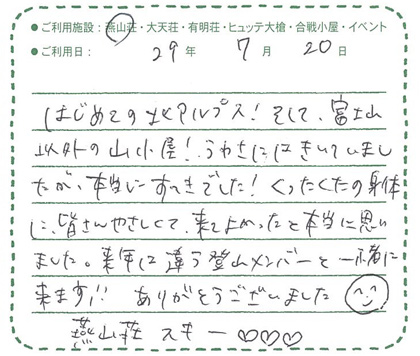 ●ご利用施設：燕山荘・大天荘・有明荘・ヒュッテ大槍・合戦小屋・イベント
●ご利用日： 29 年 7 月 20 日
はじめての北アルプス！そして、富士山
以外の山小屋！うわさにはきいていまし
たが、本当にすてきでした！くったくたの身体
に、皆さんやさしくて、来てよかったと本当に思い
ました。来年は違う登山メンバーと一緒に
来ます!! ありがとうございました
燕山荘 スキー♡♡♡